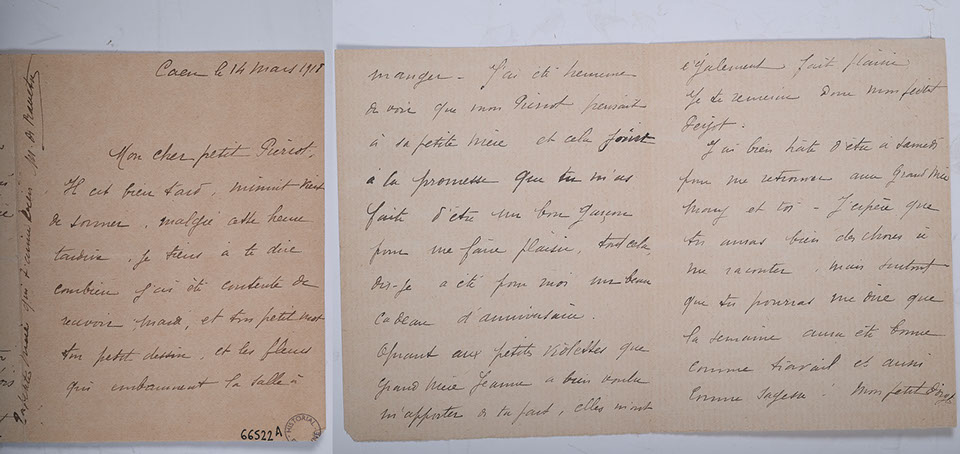 Caen le 14 mars 1918
Mon cher petit Pierrot,
Il est bien tard, minuit vient
de sonner, malgré cette heure
tardive, je tiens à te dire
combien j'ai été contente de
recevoir mardi, et ton petit mot
ton petit dessin, et les fleurs
qui embaument la salle à
66522A
HISTORIAL
manger - J'ai été heureuse
de voir que mon Pierrot pensait
à sa petite Mère et cela joint
à la promesse que tu m'as
faite d'être un bon garçon
pour me faire plaisir, tout cela,
dis-je a été pour moi un beau
cadeau d'anniversaire.
Quant aux petites violettes que
Grand Mère Jeanne a bien voulu
m'apporter de ta part, elles m'ont
également fait plaisir
Je te remercie donc mon petit
J'ai bien hâte d'être à samedi
pour me retrouver avec Grand Mère
et toi - J'espère que
tu auras bien des choses à
me raconter, mais surtout
que tu pourras me dire que
la semaine aura été bonne
comme travail et aussi
comme sagesse ! Mon petit